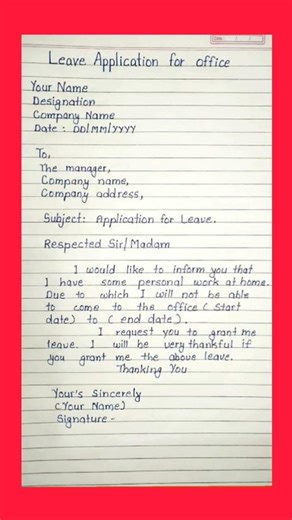 Leave Application for office
Your Name
Designation
Company Name
Date : DD/MM/YYYY
To,
The manager,
Company name,
Company address,
Subject: Application for Leave.
Respected Sir/Madam
I would like to inform you that
I have some personal work at home.
Due to which I will not be able
to come to the office ( start
date) to ( end date).
I request you to grant me
leave. I will be very thankful if
you grant me the above leave.
Thanking You
Your's Sincerely
(Your Name)
Signature -